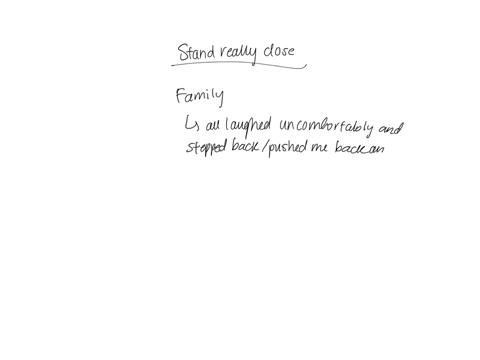 Stand really close
Family
↳ all laughed uncomfortably and
stepped back/pushed me back an